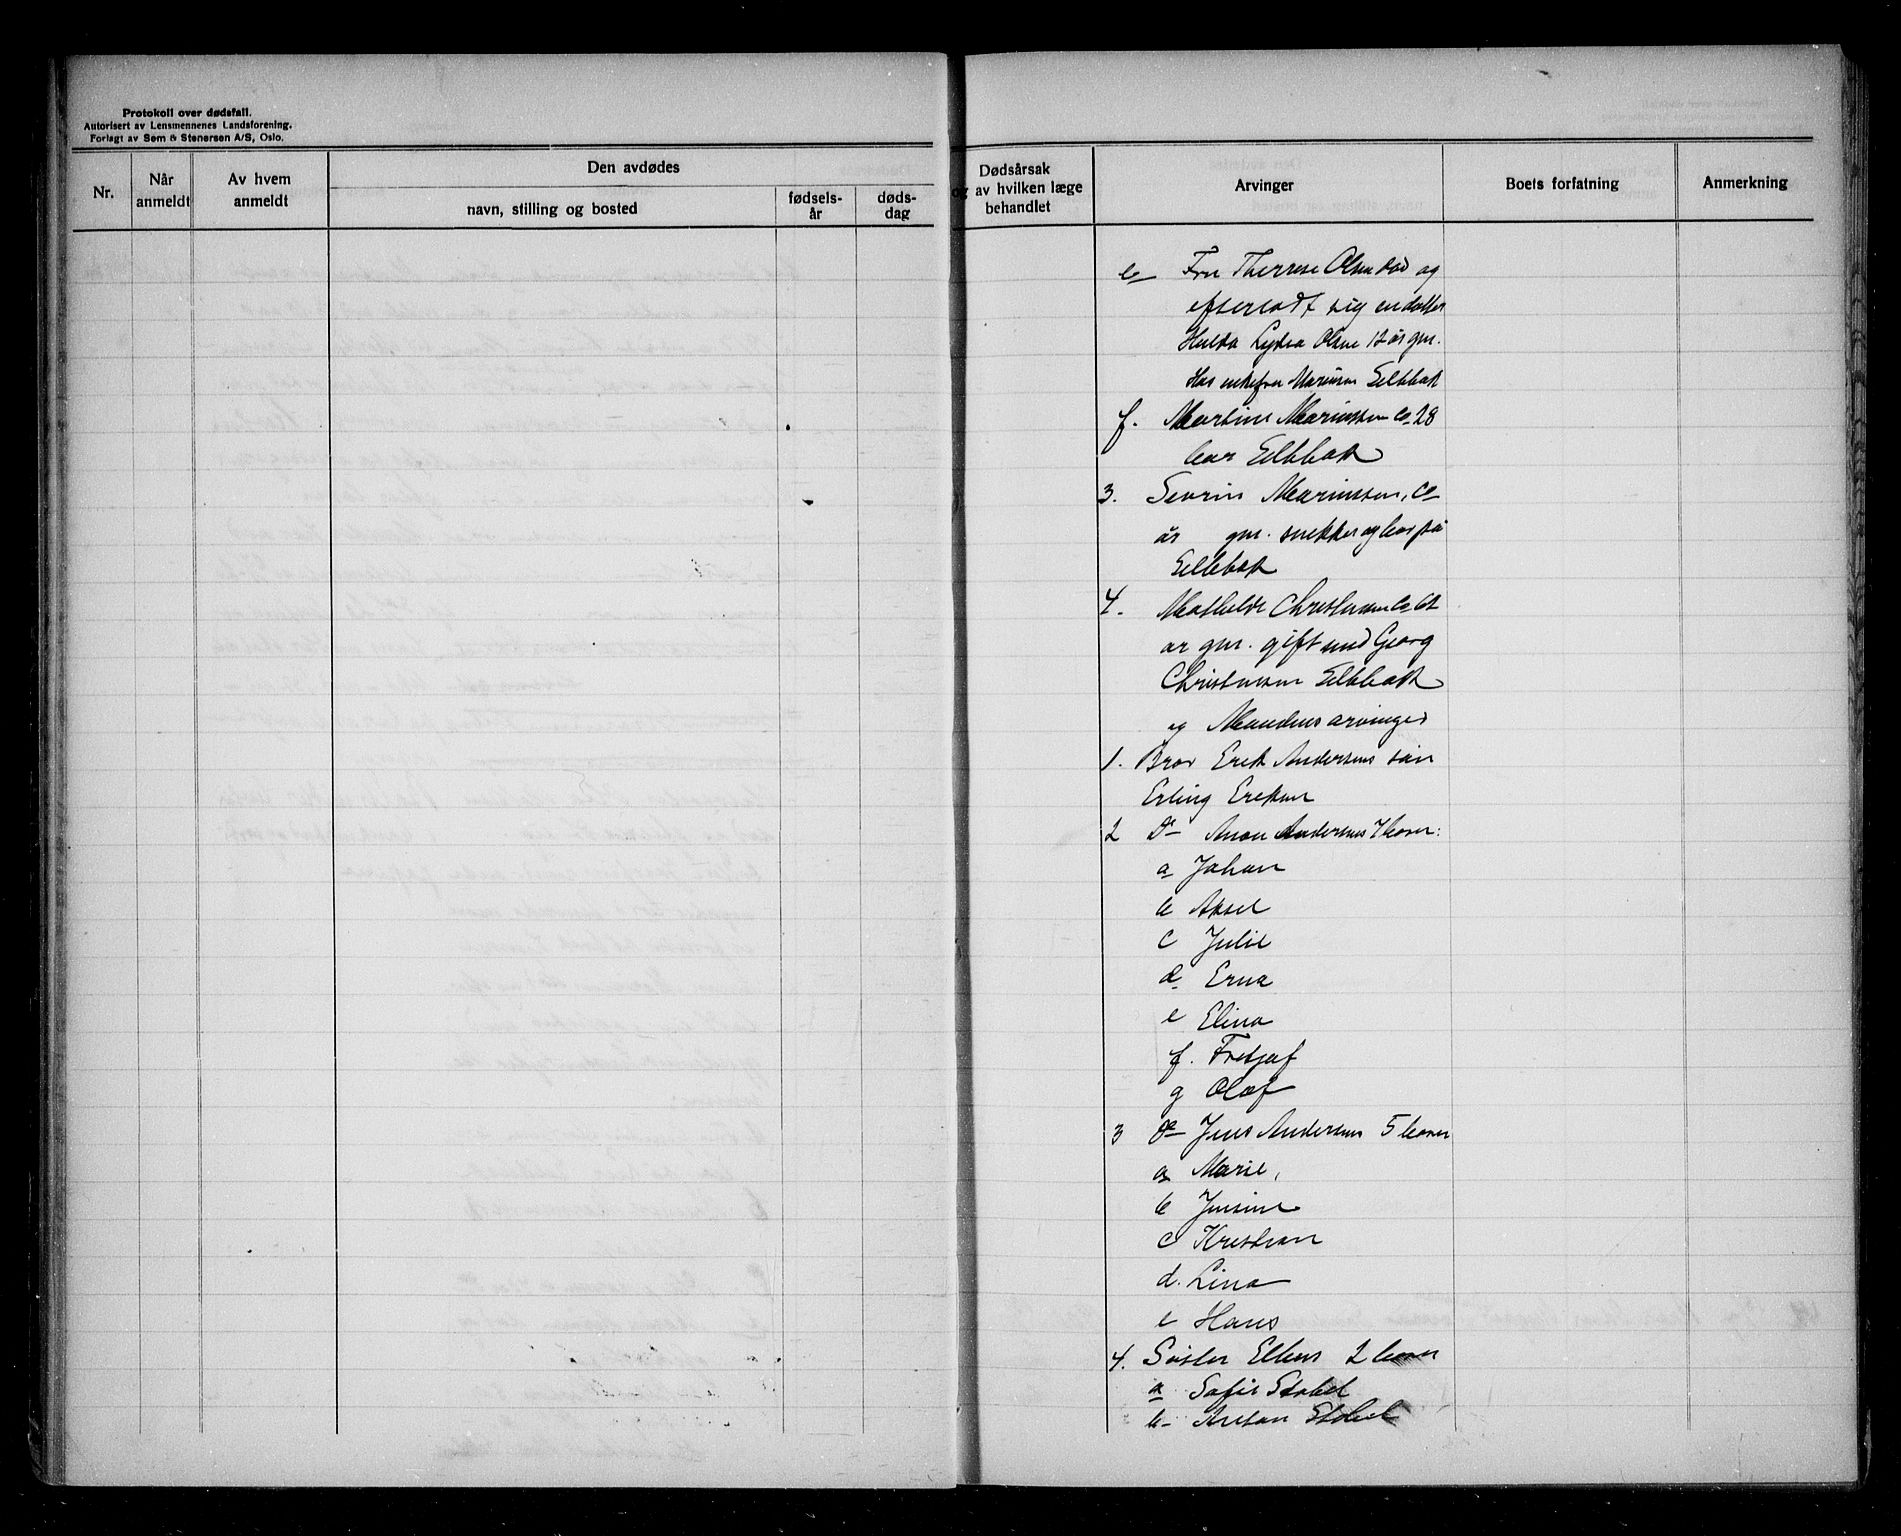 Protokoll over dødsfall.
Autorisert av Lensmennenes Landsforening.
Forlagt av Sem & Stenersen A/S, Oslo.
Nr.
Når anmeldt
Av hvem anmeldt
Den avdødes
navn, stilling og bosted
fødsels-år
døds-dag
Dødsårsak
og av hvilken læge
behandlet
Arvinger
Boets forfatning
Anmerkning
e Fru Therese Olsen død og
efterlodt sig en datter
Hulda Lydia Olsen 12 år gm.
Hos enkefru Selbak
f. Martin Marinssen ca 28
bor Selbak
3. Sevrin Marinssen, ca
år gm. snekker og bor på
Sellebak
4. Mathilde Christensen ca
år gm. gift med Georg
Christensen Selbak
og Mandens arvinger
1. Bror Erik Andersens søn
Erling Eriksen
2 Do Anton Andersens 7 barn:
a Johan
b Aksel
c Julie
d Erna
e Elina
f. Fritjof
g Olaf
3 Do Jens Andersens 5 barn
a Marie,
b Jensine
c Kristian
d. Lina
e Hans
4. Søster Ellens 2 barn
a Sofie Stabel
b Anton Stabel